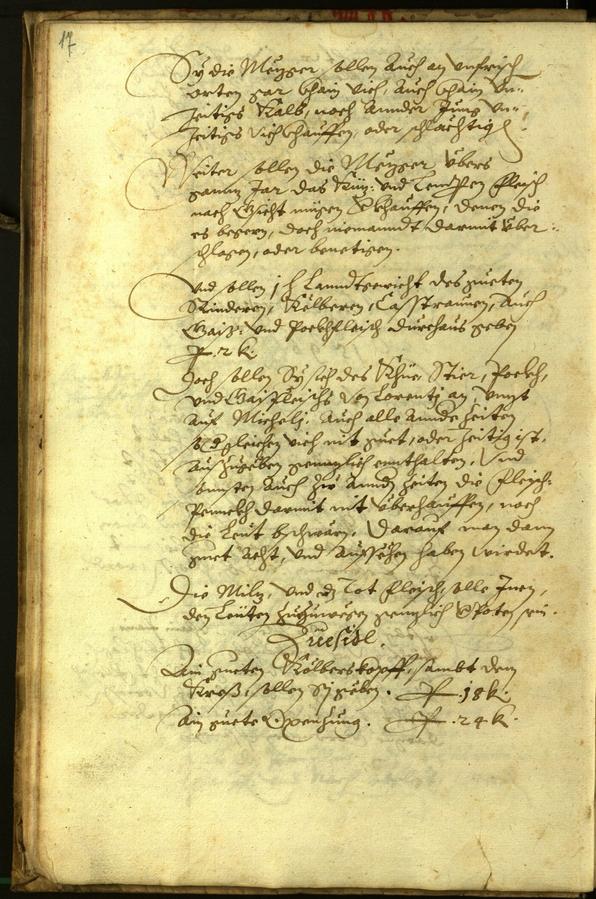 17
Sy die Mezger sollen auch an unfrisch
orten gar khain vich, auch khain un-
zeitigs Kalb, noch annder Jung un-
zeitigs vich khauffen, oder schlachtigen
Weiter sollen die Mezger übers
ganz Jar das Küe: und Lempen fleisch
nach Gwicht mügen verkhauffen, denen die
es begern, doch niemanndt darmit über-
schlagen, oder benetigen.
Und sollen 1 lb Lanndtgewicht des gueten
Rinderen, Kälberen, Casstraunen, auch
Gaiß: und Pockhfleisch durchaus geben
Pr 2 k.
Doch sollen Sy sich des Khüe, Stier, Pockh,
und Gaißfleischs von Lorentj an, unnzt
auf Michelj. Auch alle annder zeiten
so dergleichen vich nit guet, oder zeitig ist,
auszugeben genzlich ennthalten. Und
sonsten auch zu annder zeiten die fleisch-
penckh darmit nit überhauffen, noch
die Leut beschwären. Darauf man dann
guet acht, und aufsehen haben wirdet.
Die Milz, und das Tot fleisch, solle Inen,
den Leüten zuzuwegen genzlich verpoten sein.
Ain gueten Kälberskopff, sambt dem
Kröß, sollen sy geben. Pr 18 k.
Ain guete Oxenzung. Pr 24 k.